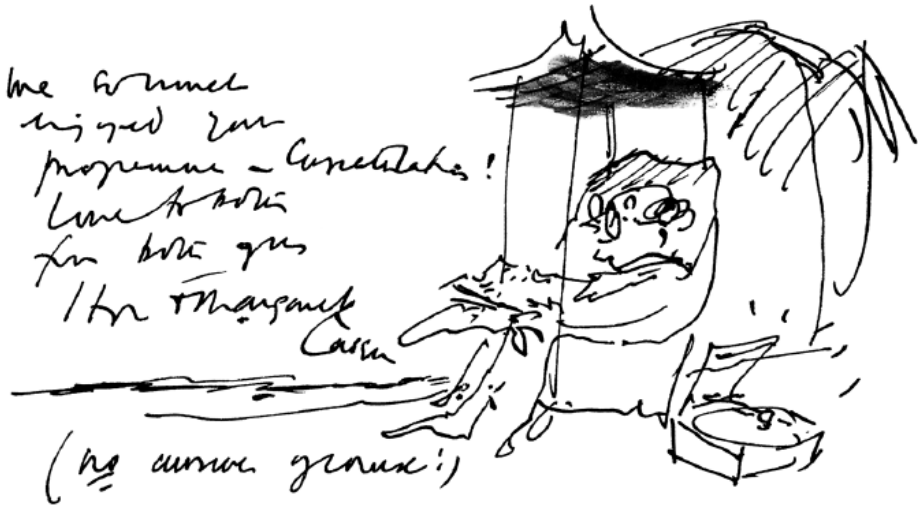 We so much
enjoyed your
programme – Congratulations!
Love to both
from both of us
Hugh + Margaret
Casson
(no answer of course!)